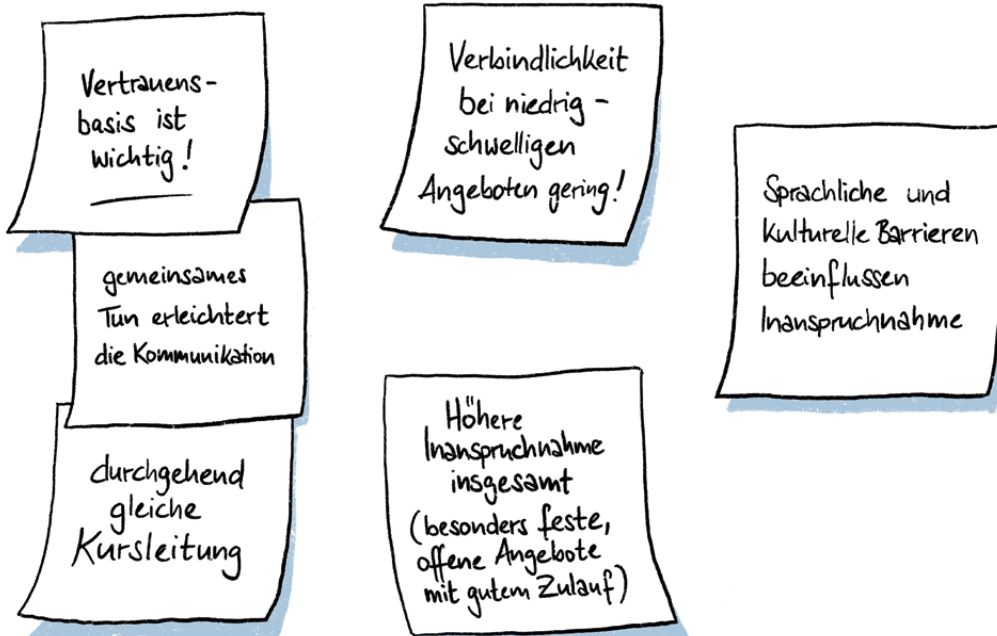 Vertrauens-
basis ist
wichtig!
gemeinsames
Tun erleichtert
die Kommunikation
durchgehend
gleiche
Kursleitung
Verbindlichkeit
bei niedrig-
schwelligen
Angeboten gering!
Höhere
Inanspruchnahme
insgesamt
(besonders feste,
offene Angebote
mit gutem Zulauf)
Sprachliche und
kulturelle Barrieren
beeinflussen
Inanspruchnahme